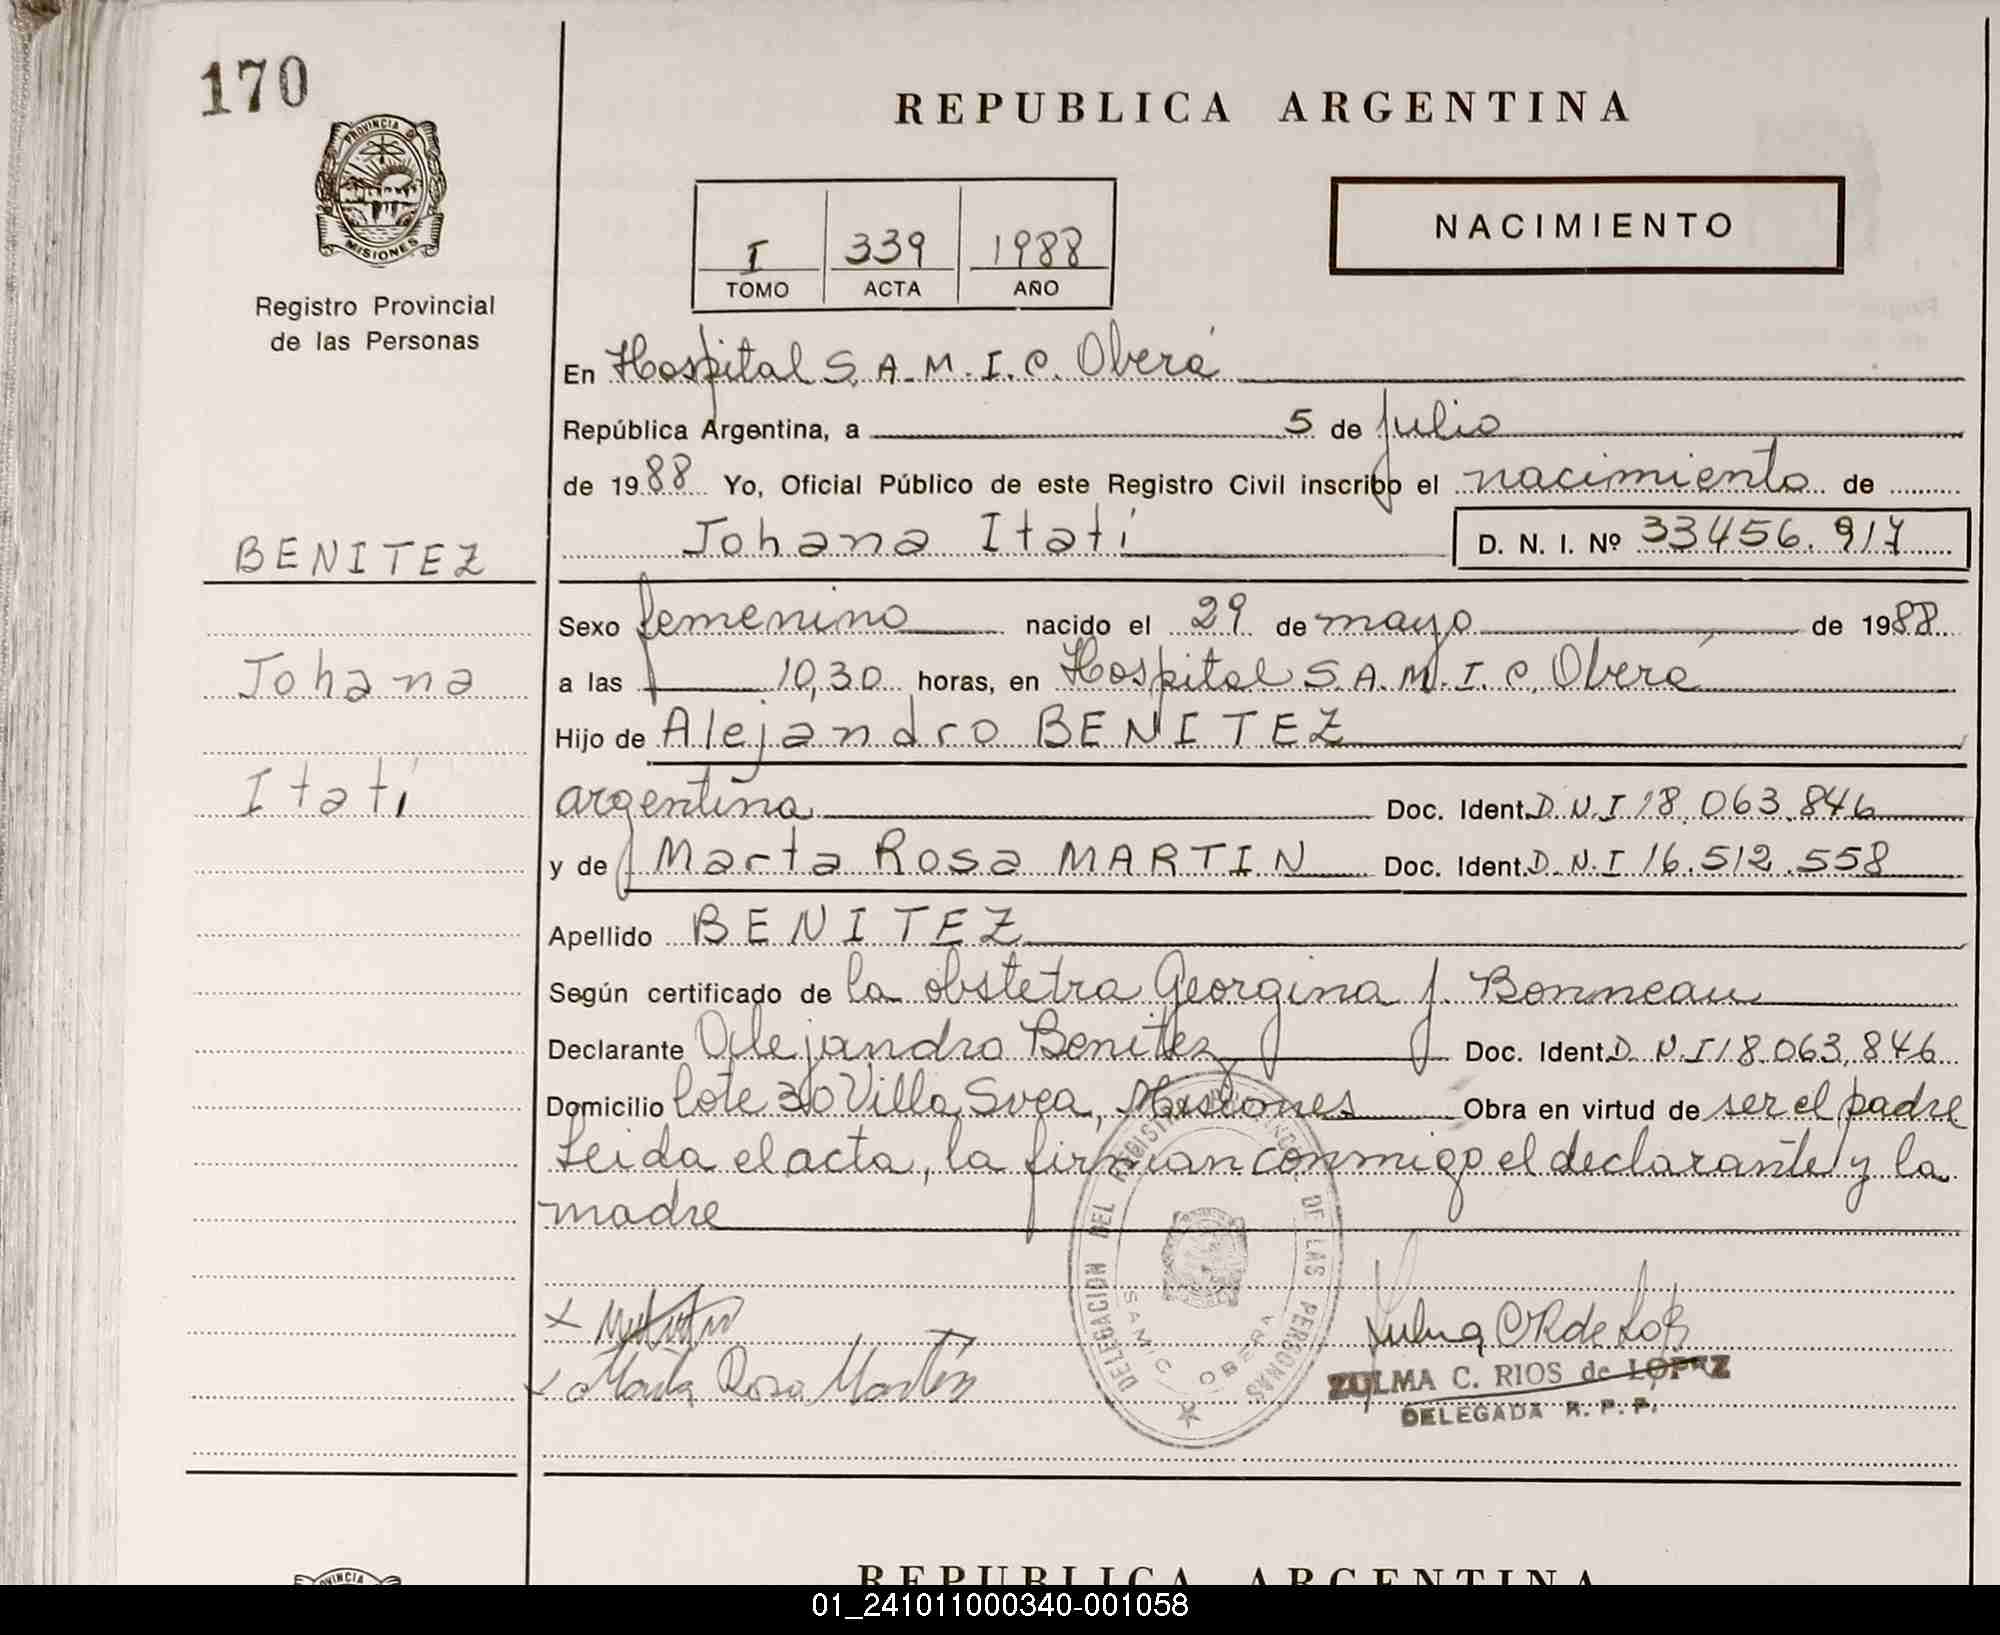 170
REPUBLICA ARGENTINA
PROVINCIA D
MISIONES
Registro Provincial
de las Personas
I 339 1988
TOMO ACTA AÑO
NACIMIENTO
En Hospital S.A.M.I.C. Oberá
República Argentina, a 5 de julio
de 1988 Yo, Oficial Público de este Registro Civil inscribo el nacimiento de
Johana Itatí D. N. I. Nº 33456.917
BENITEZ
Johana
Itatí
Sexo femenino nacido el 29 de mayo de 1988
a las 10,30 horas, en Hospital S.A.M.I.C. Oberá
Hijo de Alejandro BENITEZ
argentina Doc. Ident. D.N.I 18.063.846
y de Marta Rosa MARTIN Doc. Ident. D.N.I 16.512.558
Apellido BENITEZ
Según certificado de la obstetra Georgina J. Bonneau
Declarante Alejandro Benitez Doc. Ident. D.N.I 18.063.846
Domicilio lote 30 Villa Svea, Misiones Obra en virtud de ser el padre
Leida el acta, la firman conmigo el declarante y la
madre
DELEGACION DEL REGISTRO PROVINCIAL DE LAS PERSONAS
SAMIC OBERA
x
x Marta Rosa Martin
ZULMA C. RIOS de LOPEZ
DELEGADA R. P. P.
VINCIA
REPUBLICA ARGENTINA
01_241011000340-001058